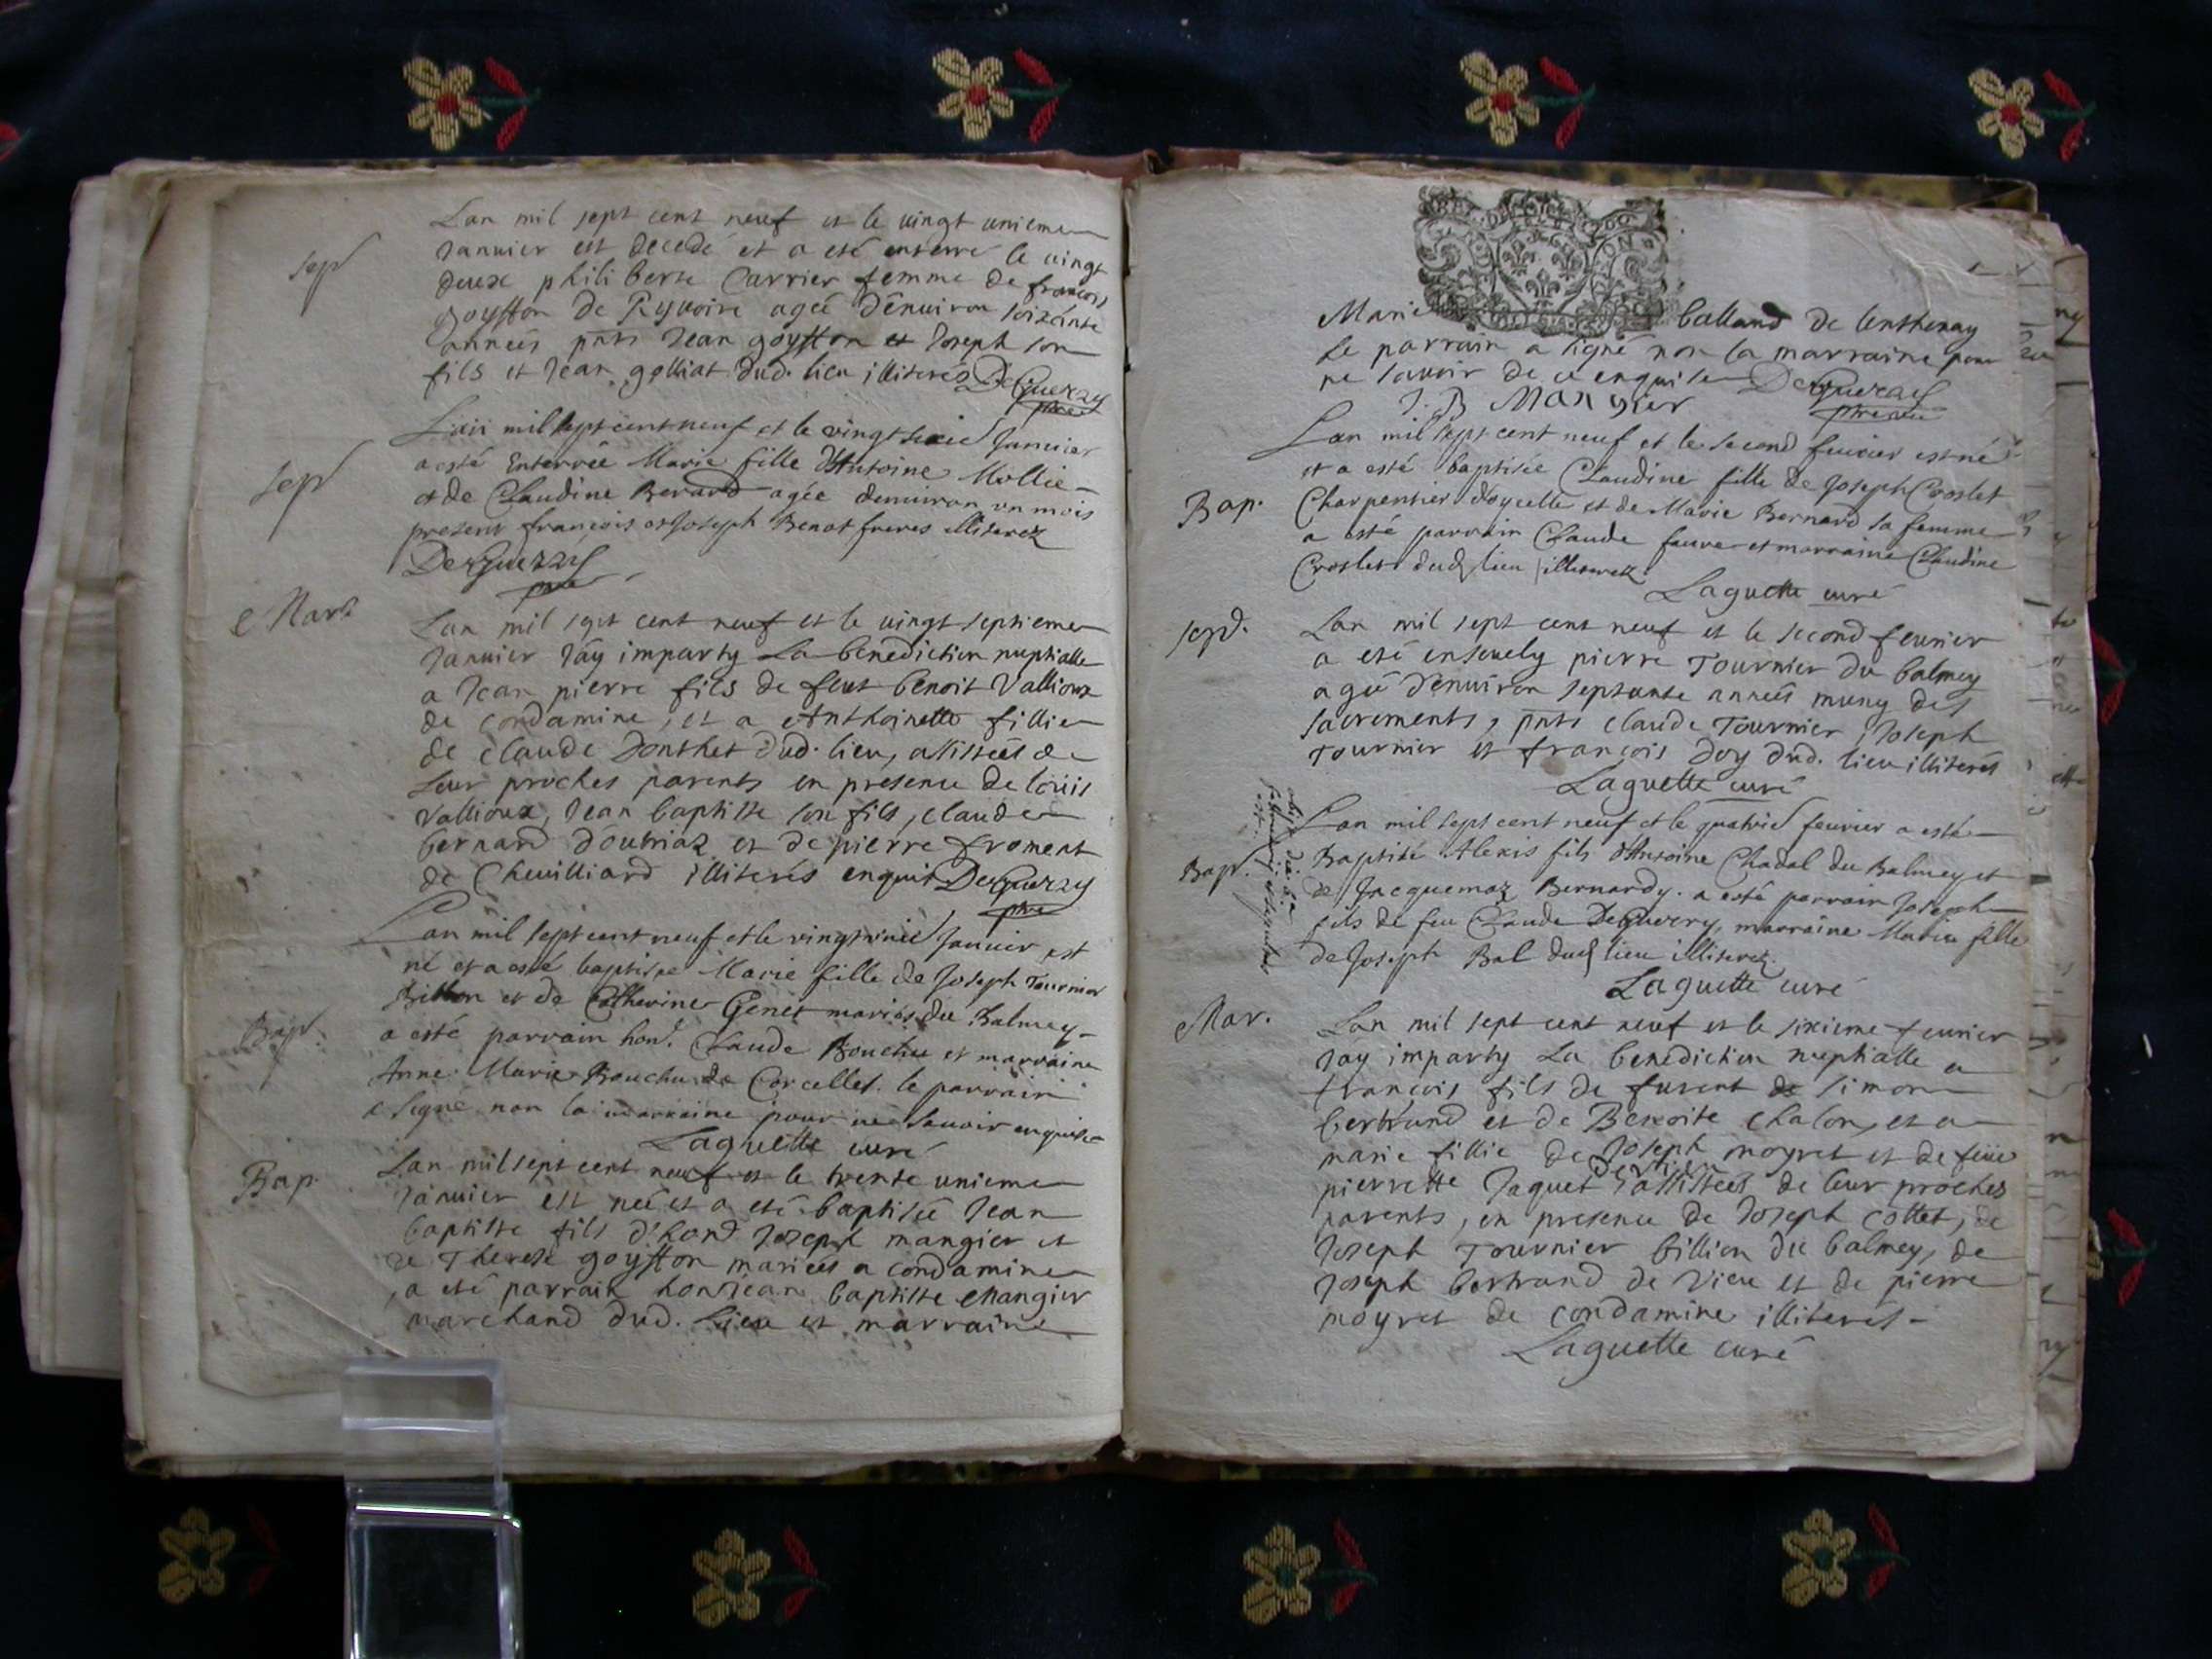 sep
Lan mil sept cent neuf et le vingt unieme
Januier est decedé et a eté enterré le vingt
deux philiberte Carrier femme de francois
goyffon de Ryuoire ageé d'enuiron soixante
annees pnts Jean goyffon et Joseph son
fils et Jean golliat dud. lieu illiterés DeGuerry
ptre
sep
Lan mil sept cent neuf et le vingt Januier
a esté Enterrée Marie fille d'Antoine Mollie
et de Claudine Berard agée denuiron un mois
present francois et Joseph Benot freres illiterez
DeGuerry
ptre
Mar.
Lan mil sept cent neuf et le vingt septieme
Januier Jay imparty La benediction nuptialle
a Jean pierre fils de feut benoit Vallioux
de condamine, et a Anthoinette fillie
de claude Donthet dud. lieu, assistées de
Leur proches parents en presence de loüis
Vallioux, Jean baptiste son fils, claude
bernard d'outriaz et de pierre froment
de Cheuilliard illiterés enquis DeGuerry
ptre
Bap.
Lan mil sept cent neuf et le Januier est
né et a esté baptisée Marie fille de Joseph Tournier
Billion et de Catherine Genet mariés du Balmey
a esté parrain hon. Claude Bouchu et marraine
Anne Marie Bouchu de Corcelles. le parrain
a signé non la marraine pour ne sauoir enquise
Laguette curé
Bap.
Lan mil sept cent neuf et le trente unieme
Januier est neé et a eté baptiseé Jean
baptiste fils d'hond Joseph mangier et
de Therese goyffon marieés a condamine
a eté parrain hon Jean baptiste Mangier
marchand dud. Lieu et marraine
Marie balland de lenthenay
Le parrain a signé non la marraine pour
ne sauoir de ce enquise DeGuerry
J. B Mangier
Bap.
Lan mil sept cent neuf et le second feurier est né
et a esté baptisée Claudine fille de Joseph Croslet
Charpentier doycelle et de Marie Bernard sa femme
a esté parrain Claude faure et marraine Claudine
Croslet dud lieu illiterez
Laguette curé
sepd.
Lan mil sept cent neuf et le second feurier
a eté enseuely pierre Tournier du balmey
ageé d'enuiron septante annees muny des
sacrements, pnts claude Tournier, Joseph
Tournier et françois Doy dud. lieu illiterés
Laguette curé
Bap.
Lan mil sept cent neuf et le quatrie feurier a esté
Baptisé Alexis fils d'Antoine Chadal du Balmey et
de Jacquemaz Bernardy. a esté parrain Joseph
fils de feu Claude DeGuerry, marraine Maria fille
de Joseph Bal dud lieu illiterez
Laguette curé
Mar.
Lan mil sept cent neuf et le sixieme feurier
Jay imparty La benediction nuptialle a
françois fils de furent de simon
bertrand et de Benoite chalon, et a
marie fillie de Joseph moyret et de feüe
pierrette Jaquet assisteés de leur proches
parents, en presence de Joseph Cottet, de
Joseph Tournier billion du balmey, de
Joseph bertrand de Vieu et de pierre
moyret de condamine illiteres
Laguette curé